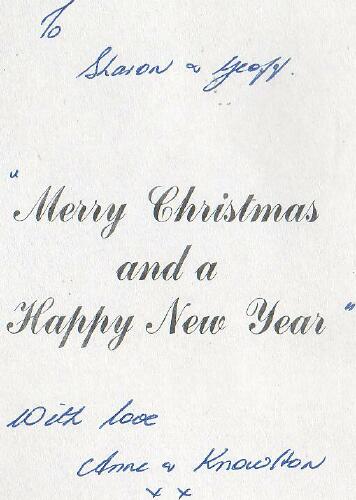 To
Sharon & Geoff.
"Merry Christmas
and a
Happy New Year"
With love
Anne & Knowlton
x x